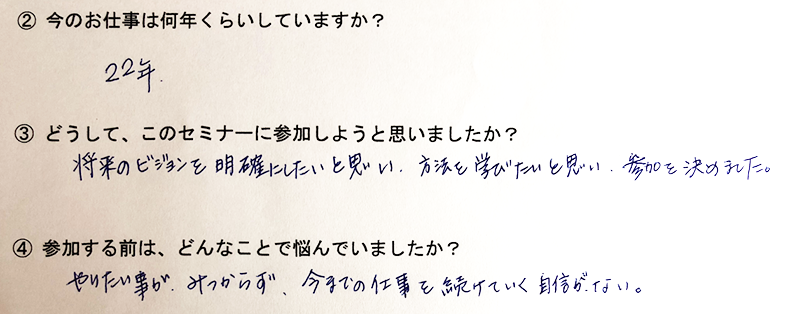 ② 今のお仕事は何年くらいしていますか？
22年.
③ どうして、このセミナーに参加しようと思いましたか？
将来のビジョンを明確にしたいと思い. 方法を学びたいと思い. 参加を決めました。
④ 参加する前は、どんなことで悩んでいましたか？
やりたい事が. みつからず、今までの仕事を続けていく自信がない。